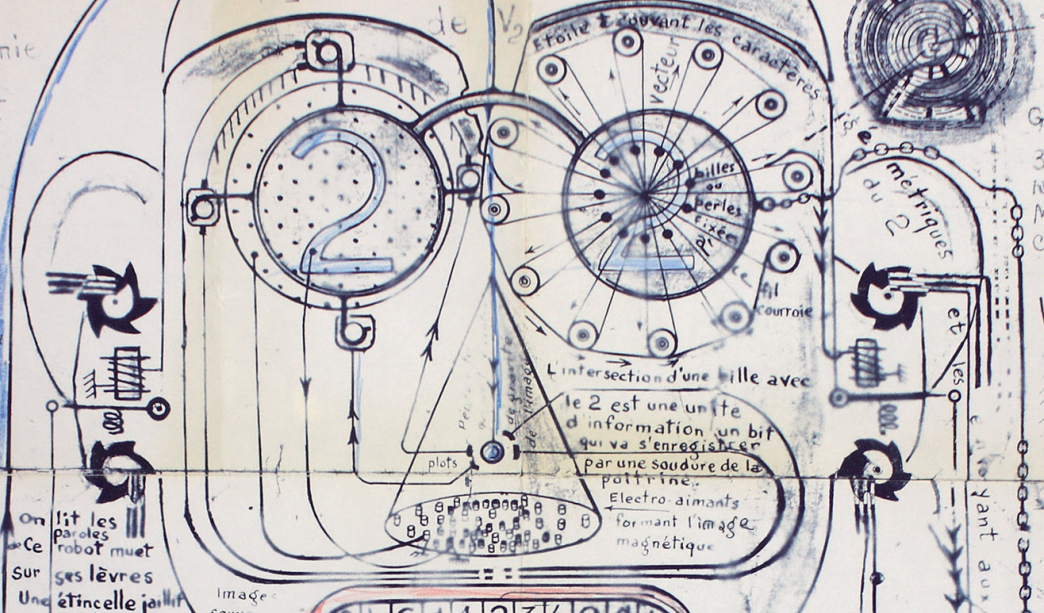 de V2
Etoile trouvant les caractères
vecteur
2
2
2
billes
ou
perles
fixées
à
ce
fil
courroie
métriques
du 2
et les
L'intersection d'une bille avec
le 2 est une unite
d'information un bit
qui va s'enregistrer
par une soudure de la
poitrine.
Electro aimants
formant l'image
magnétique
plots
de l'image
On lit les
paroles
de Ce robot muet
sur ses lèvres
Une étincelle jaillit
Image
yant aux